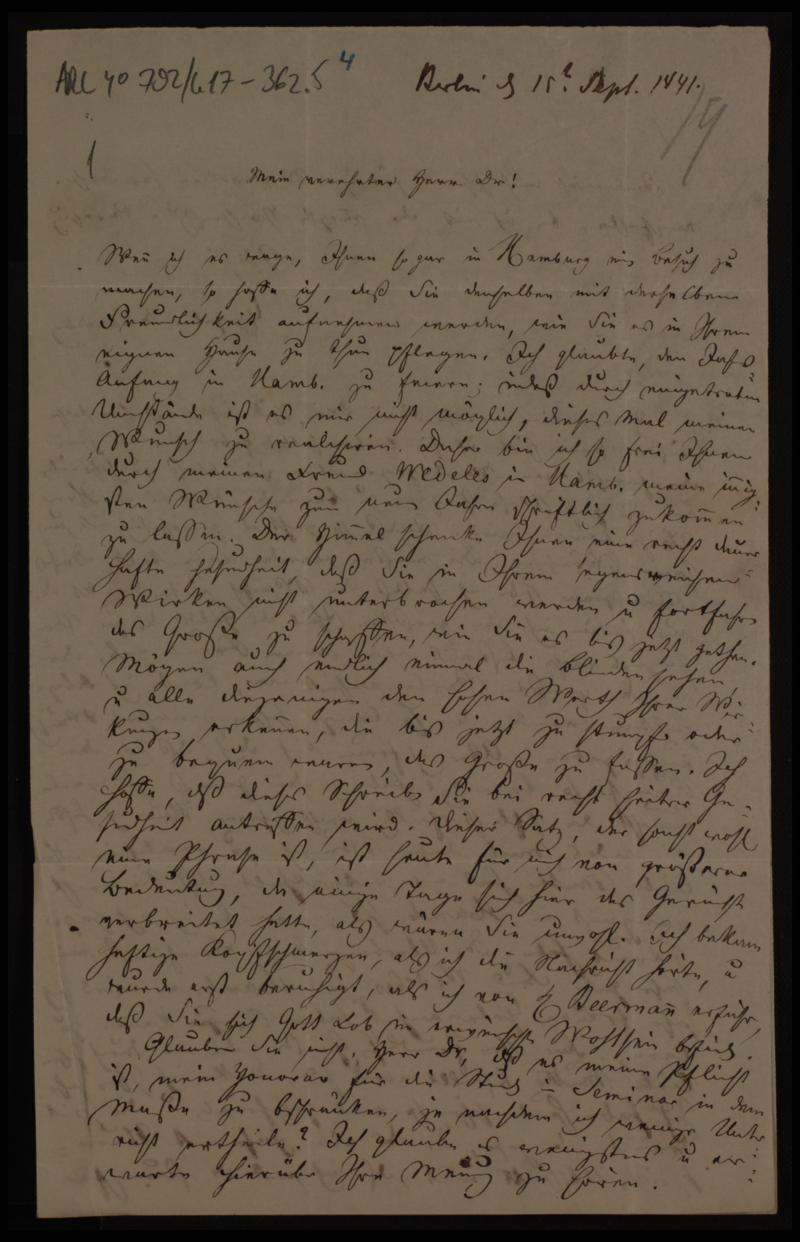 ARC 4º 792/617-362.5 4
Berlin d 15t Sept. 1841.
1
19
Mein verehrter Herr Dr!
Weñ ich es wage, Ihnen sogar in Hamburg ein Besuch zu
machen, so hoffe ich, daß Sie denselben mit derselben
Freundlichkeit aufnehmen werden, wie Sie es in Ihrem
eignen Hause zu thun pflegen. Ich glaubte, den Jahres
Anfang in Hamb. zu feiern; indeß durch eingetretene
Umstände ist es mir nicht möglich, dieses Mal meinen
Wunsch zu realisiren. Daher bin ich so frei Ihnen
durch meinen Freund Medeles in Hamb. meine innig-
sten Wünsche zum neuen Jahre schriftlich zukom̅en
zu lassen. Der Himmel schenke Ihnen eine recht dauer-
hafte Gesundheit, daß Sie in Ihrem segensreichen
Wirken nicht unterbrochen werden u fortfahren
das Große zu schaffen, wie Sie es bis jetzt gethan.
Mögen auch endlich einmal die Blinden sehen
u alle diejenigen den hohen Werth Ihrer Wir-
kungen erkeñen, die bis jetzt zu stumpf oder
zu bequem waren, das Große zu fassen. Ich
hoffe, daß dieses Schreiben Sie bei recht heiterer Ge-
sundheit antreffen wird. Dieser Satz, der sonst wohl
eine Phrase ist, ist heute für mich von größerer
Bedeutung, da einige Tage sich hier das Gerücht
verbreitet hatte, als wären Sie unwohl. Ich bekam
heftige Kopfschmerzen, als ich die Nachricht hörte, u
wurde erst beruhigt, als ich von H Beermañ erfuhr,
daß Sie sich Gott Lob im erwünschten Wohlsein befind.
Glauben Sie nicht, Herr Dr, daß es meine Pflicht
ist, mein Honorar für die Stund. im Seminar in dem
Maße zu beschränken, je nachdem ich wenige Unter-
richt ertheile? Ich glaube es wenigstens u er-
warte hierüber Ihre Meinung zu hören.